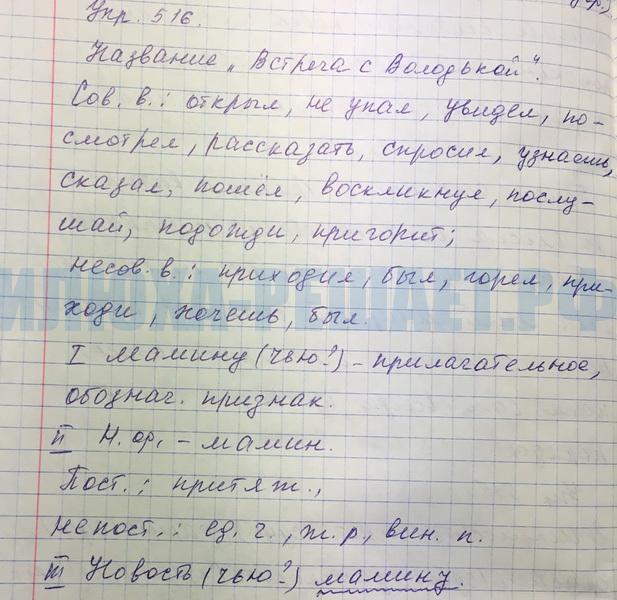 Упр. 516.
Название „Встреча с Володькой".
Сов. в.: открыл, не упал, увидел, по-
смотрел, рассказать, спросил, узнаешь,
сказал, пошёл, воскликнул, послу-
шай, подожди, пригорит;
несов. в.: приходил, был, горел, при-
ходи, хочешь, был.
ИЛЮХА-РЕШАЕТ.РФ
I мамину (чью?) - прилагательное,
обознач. признак.
II Н.ф. - мамин.
Пост.: притяж.,
непост.: ед. ч., ж.р, вин. п.
III Новость (чью?) мамину.